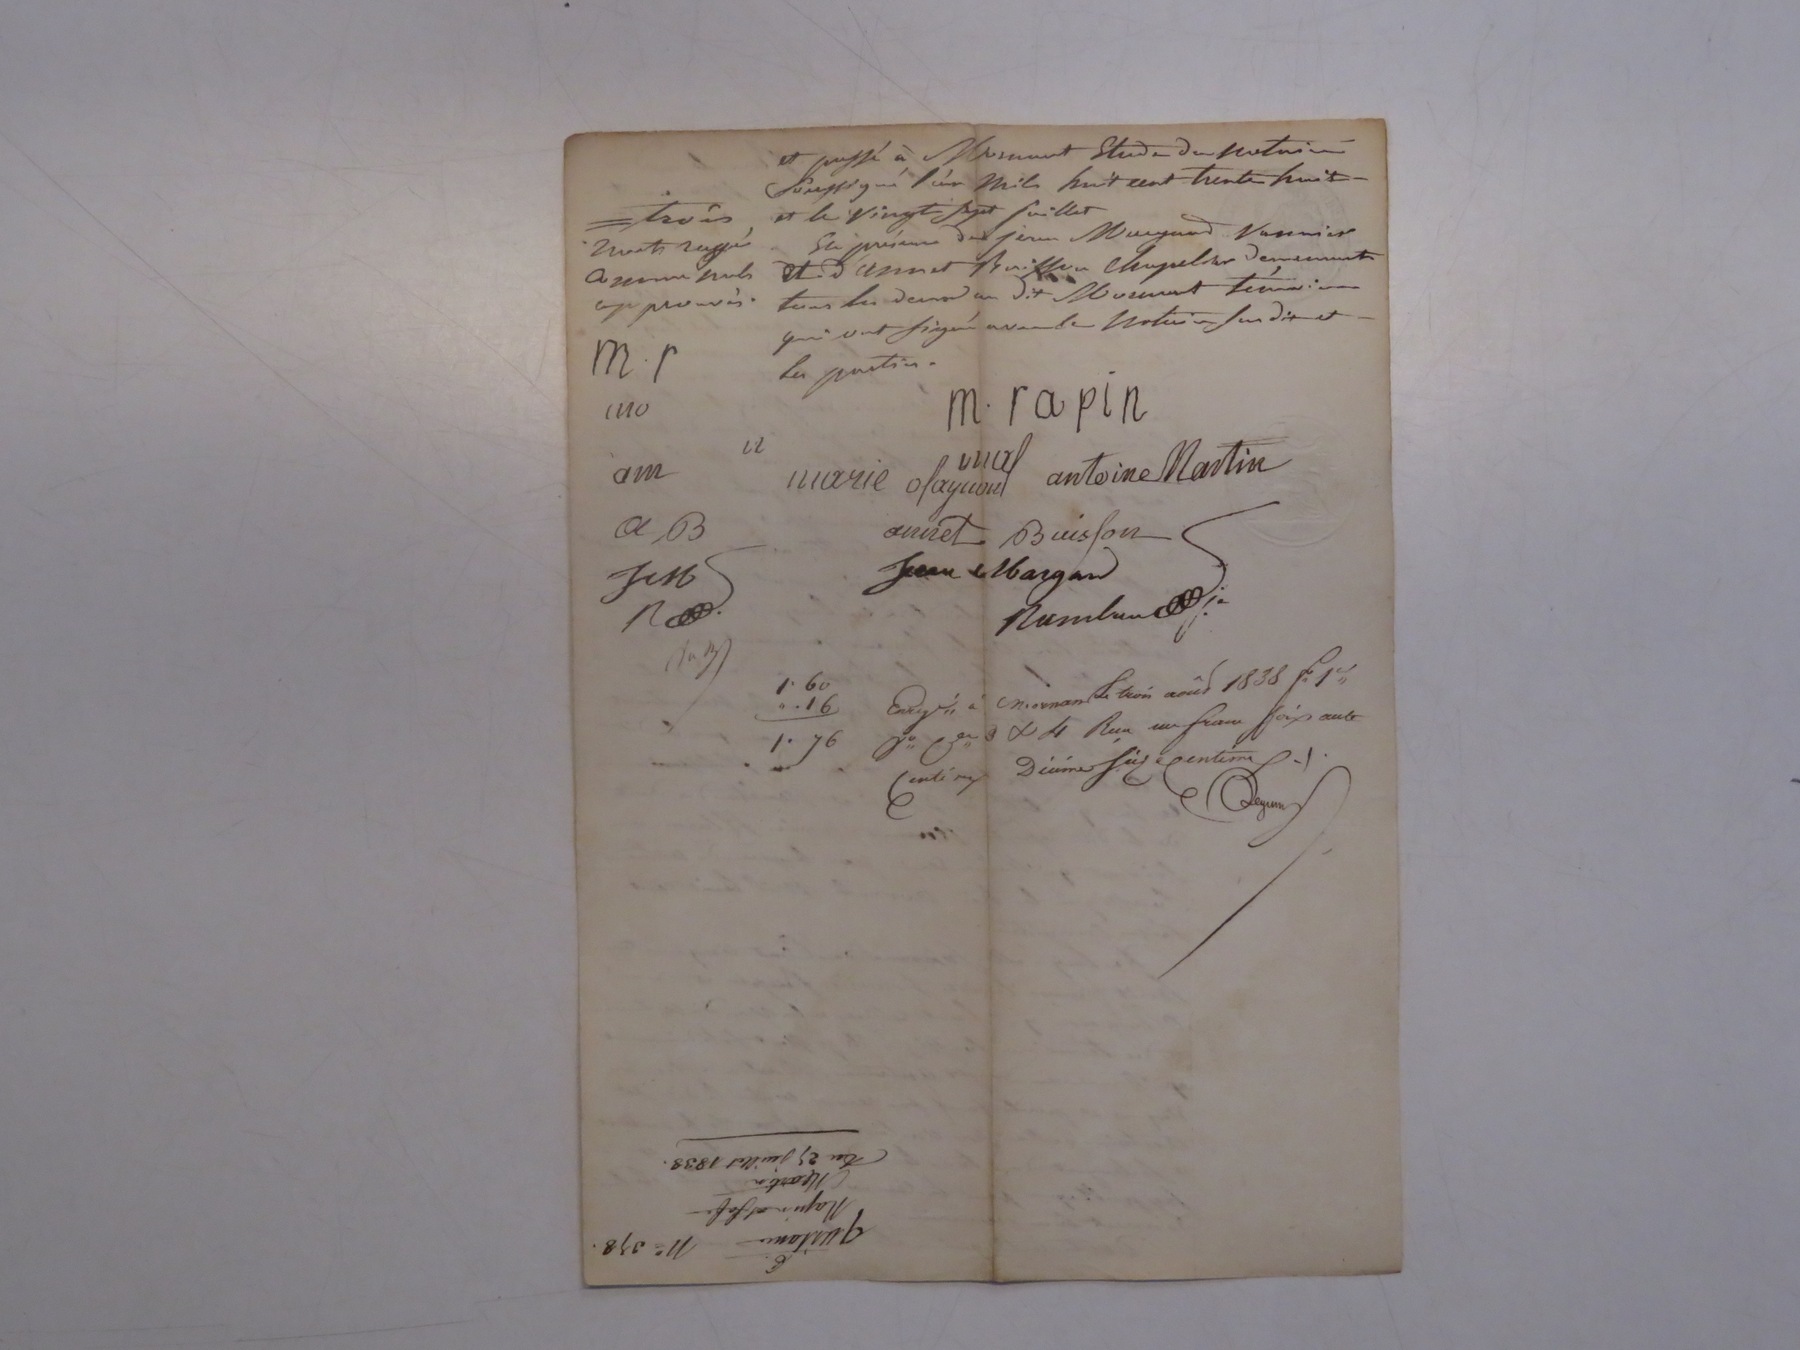 et passé à Mornant Etude du notaire
soussigné l'an mil huit cent trente huit
et le vingt sept juillet
En présence de jean Margand Vannier
et d'annet Buisson chapelier demeurant
tous les deux au dit Mornant témoins
qui ont signé avec le notaire susdit et
les parties.
trois
mots rayés
comme nuls
approuvés.
m. r
mo
am
a B
JcM
R
m. rapin
marie
antoine Martin
annet Buisson
Jean Margand
1. 60
". 16
1. 76
à Mornant le trois août 1838 f° 1er
un franc soixante
centimes Décime seize centimes
C.
quittance N° 378.
Rapin
Martin
Du 27 juillet 1838.